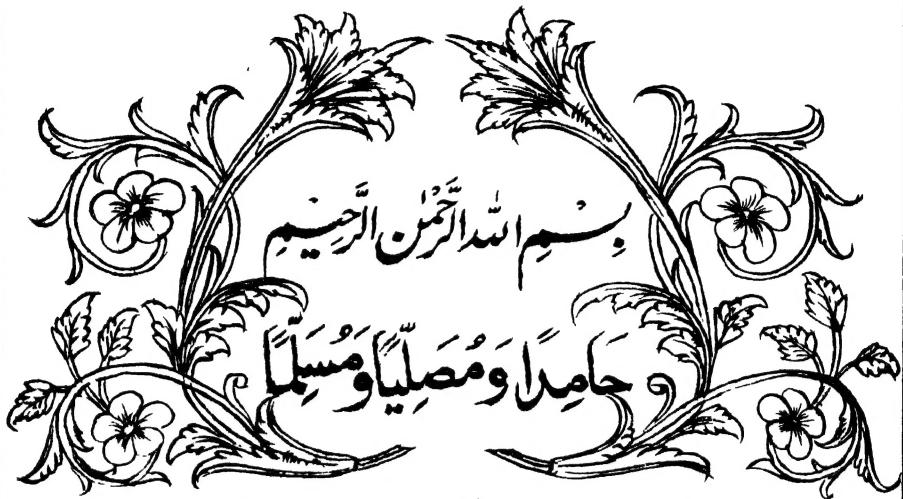 بِسْمِ اللهِ الرَّحْمٰنِ الرَّحِيْمِ
حَامِدًا وَمُصَلِّيًا وَمُسَلِّمًا